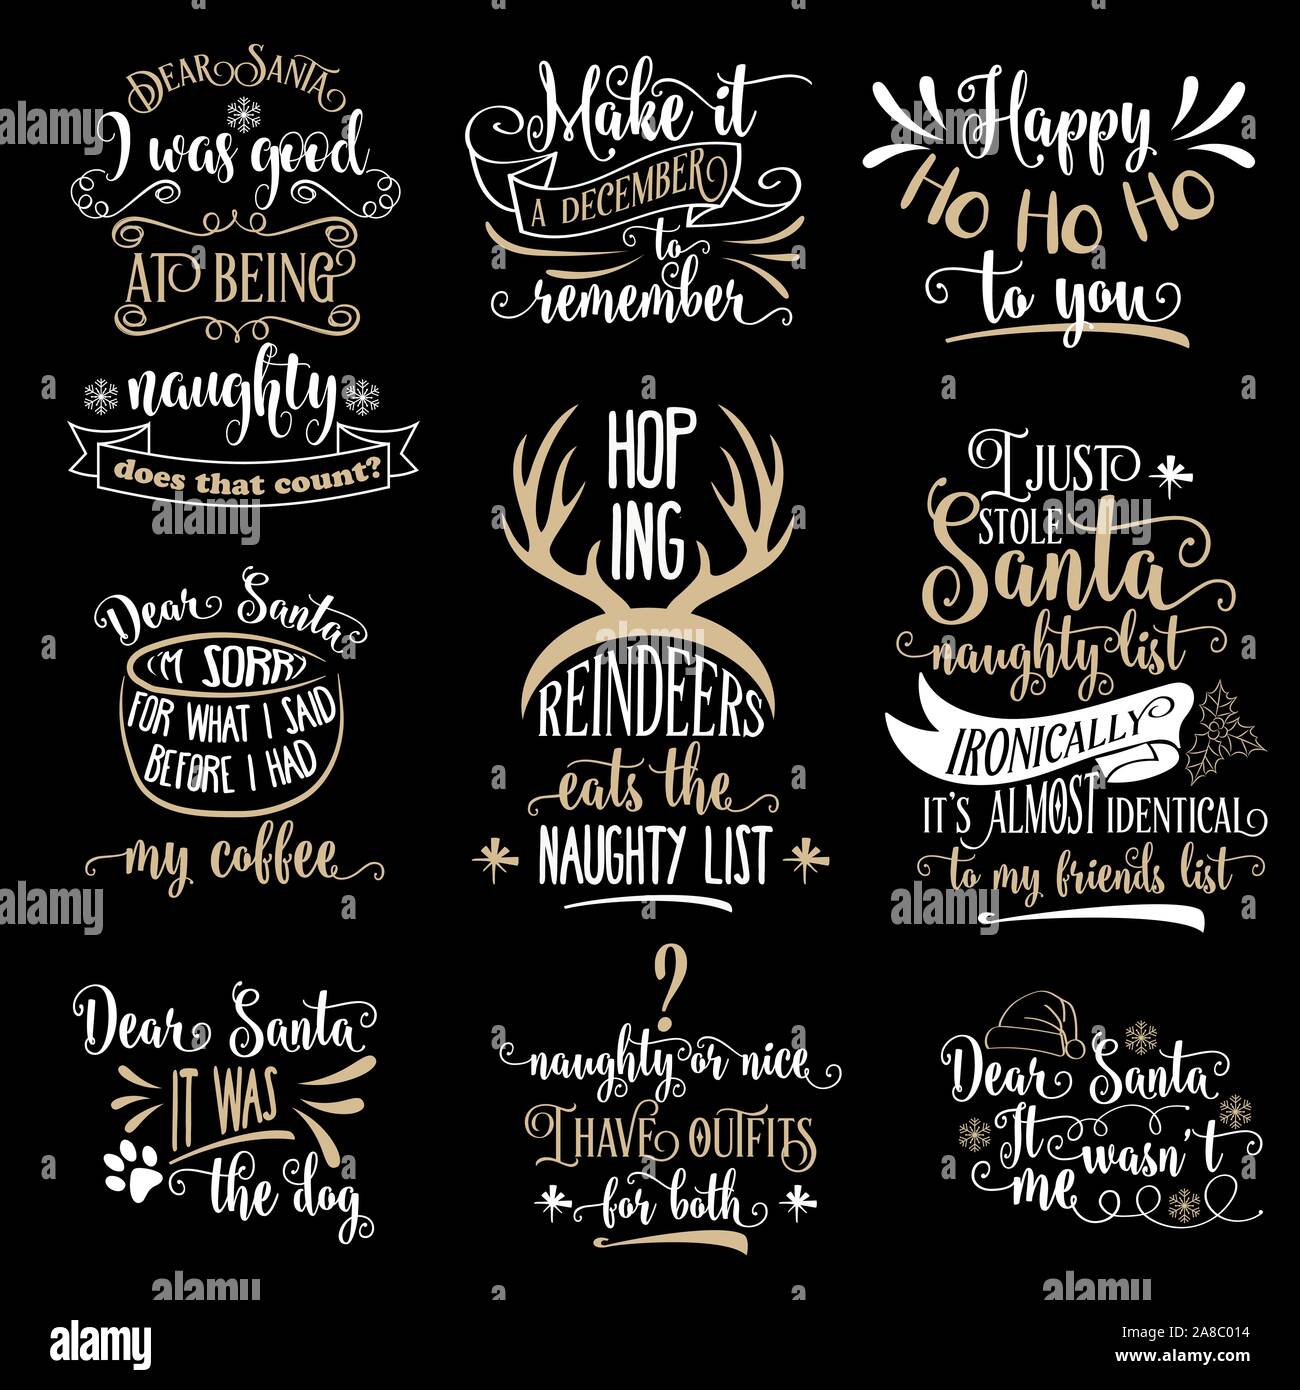 DEAR SANTA
I was good
AT BEING
naughty
does that count?
Make it
A DECEMBER
to
remember
Happy
HO HO HO
to you
Dear Santa
I'M SORRY
FOR WHAT I SAID
BEFORE I HAD
my coffee
HOP
ING
REINDEERS
eats the
NAUGHTY LIST
I JUST
STOLE
Santa
naughty list
IRONICALLY
IT'S ALMOST IDENTICAL
to my friends list
Dear Santa
IT WAS
the dog
?
naughty or nice
I HAVE OUTFITS
for both
Dear Santa
It wasn't
me
alamy
Image ID: 2A8C014
www.alamy.com